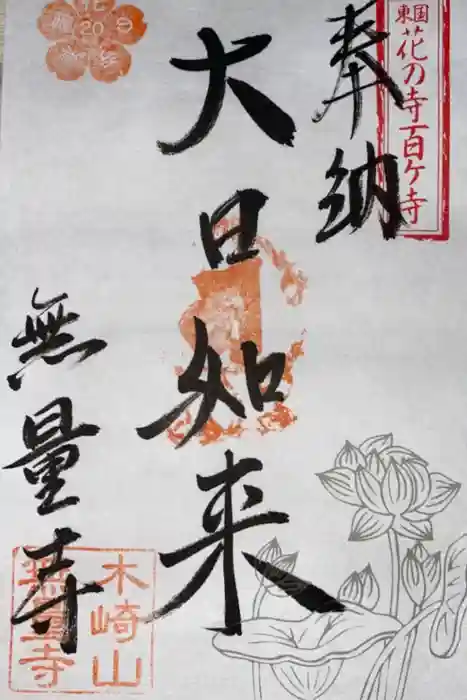 東国花の寺百ケ寺
奉納
大日如来
無量寺
木崎山
無量寺
20